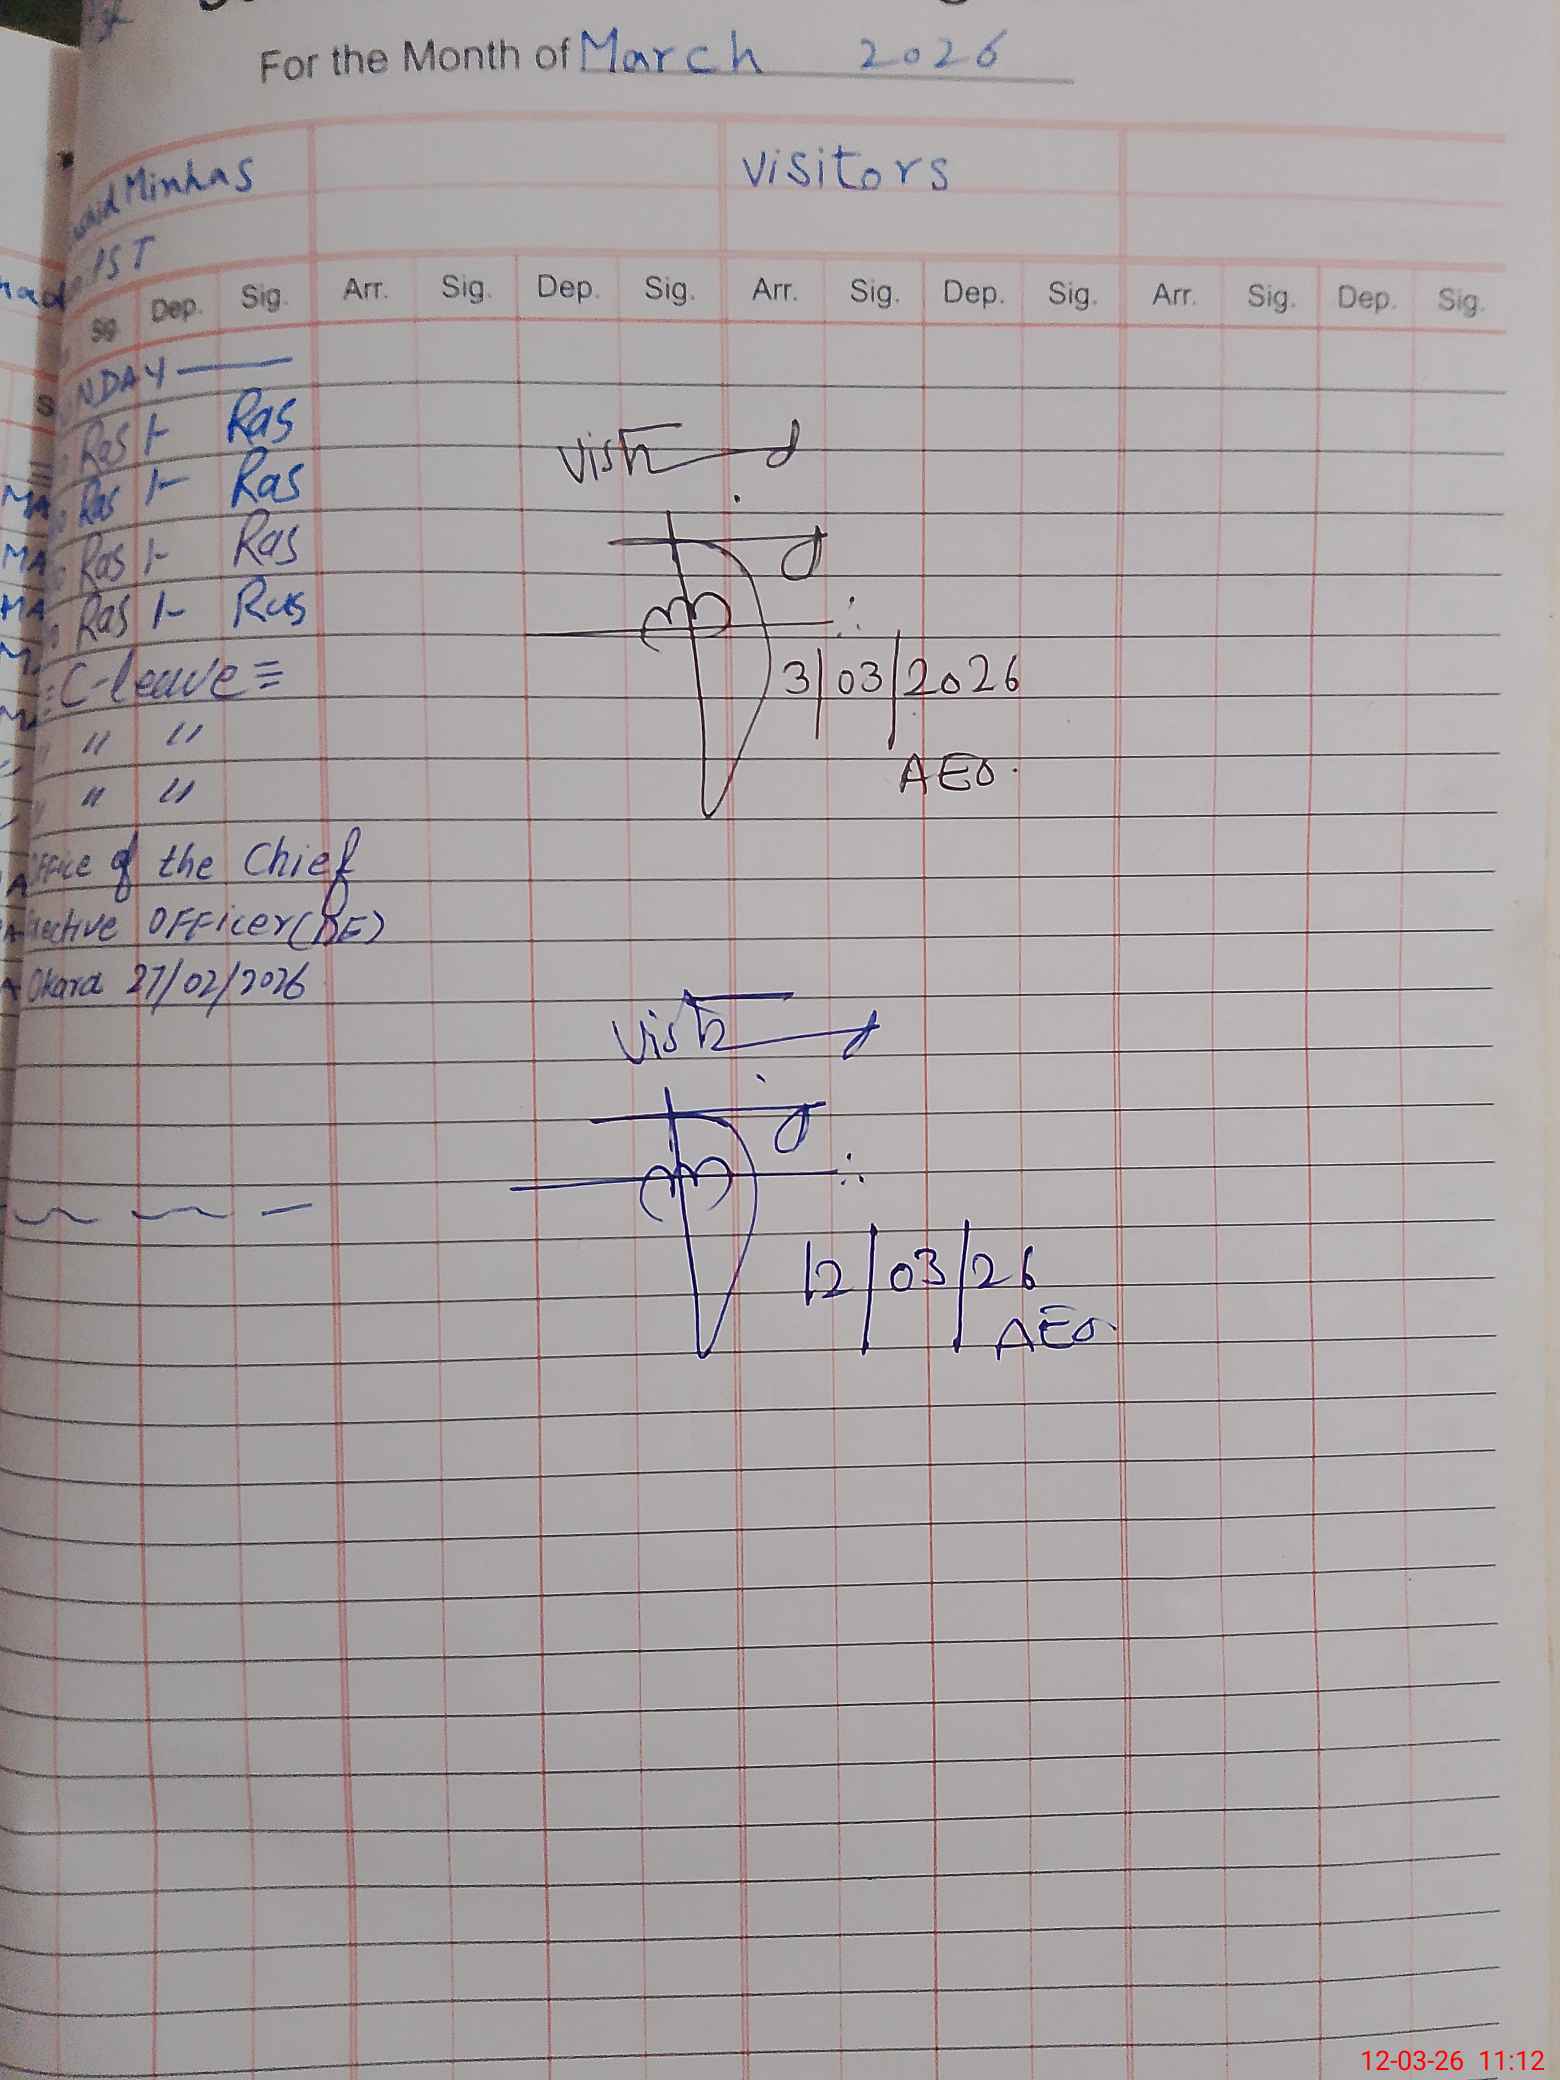 For the Month of March 2026
Minhas
Visitors
IST
Sig. Dep. Sig. Arr. Sig. Dep. Sig. Arr. Sig. Dep. Sig. Arr. Sig. Dep. Sig.
NDAY
Ras 1- Ras
Ras 1- Ras
Ras 1- Ras
Ras 1- Ras
C-leave =
" "
" "
3/03/2026
AEO.
office of the Chief
OFFicer(DE)
Okara 27/02/2026
12/03/26
AEO.
12-03-26 11:12